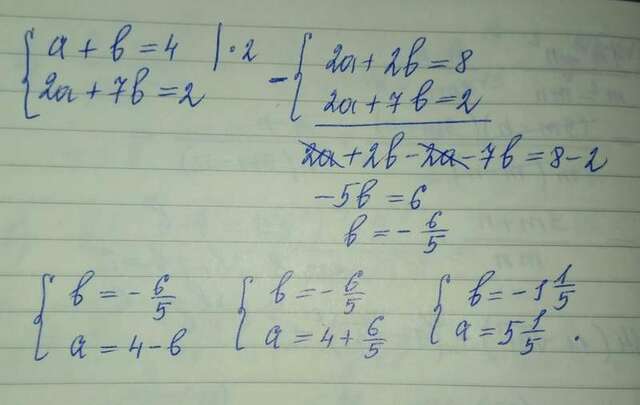 { a + b = 4 | · 2
{ 2a + 7b = 2
- { 2a + 2b = 8
{ 2a + 7b = 2
2a + 2b - 2a - 7b = 8 - 2
-5b = 6
b = - 6/5
{ b = - 6/5
{ a = 4 - b
{ b = - 6/5
{ a = 4 + 6/5
{ b = -1 1/5
{ a = 5 1/5 .